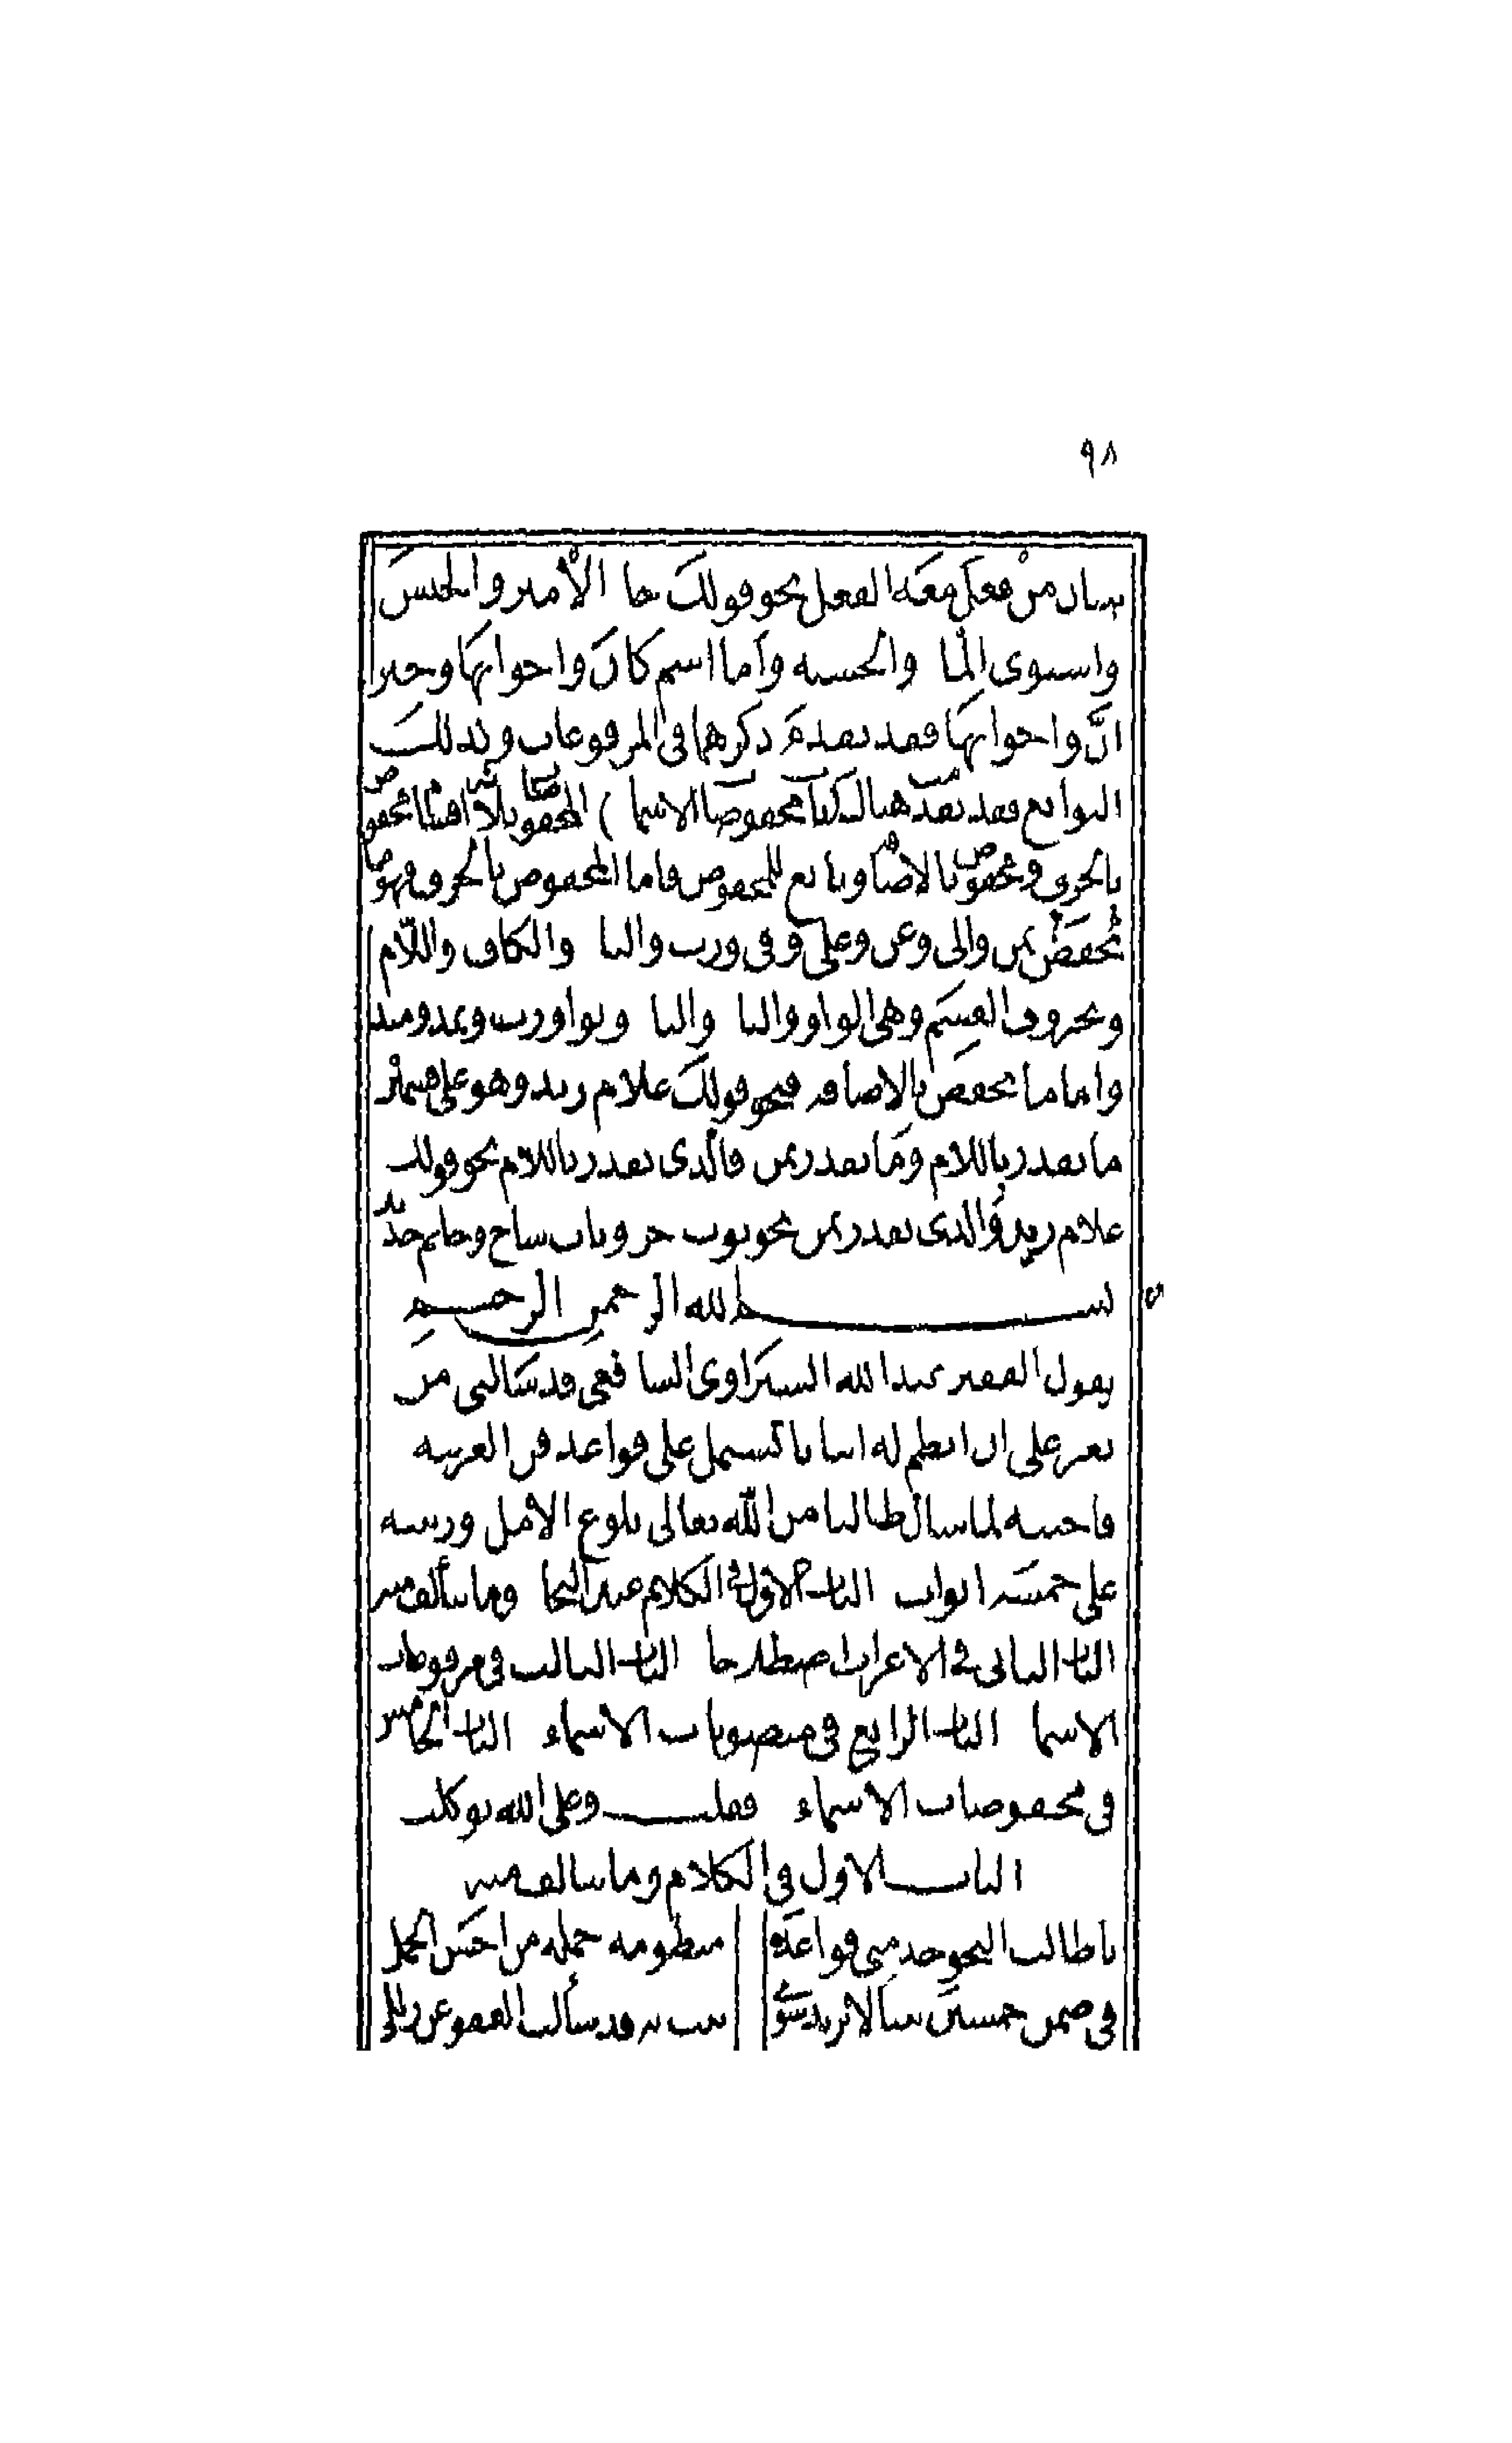 ٩٨
بيان من فعل معه الفعل نحو قولك جا الأمير والجيش
واستوى الما والخشبه وأما اسم كان واخواتها وخبر
انّ واخواتها فقد تقدم ذكرهما في المرفوعات وكذلك
التوابع فقد تقدمت هنالك كتاب مخفوضات الاسما المخفوضات ثلاثة اقسام مخفوض
بالحرف ومخفوض بالاضافه وتابع للمخفوض فاما المخفوض بالحرف فهو ما
يُخفض بمن والى وعن وعلى وفي ورب والبا والكاف واللام
وبحروف القسم وهي الواو والبا والتا وبواو رب وبمذ ومنذ
واما ما يخفض بالاضافه فنحو قولك غلام زيد وهو على قسمين
ما يقدر باللام وما يقدر بمن فالذى يقدر باللام نحو قولك
غلام زيد والذى يقدر بمن نحو ثوب خز وباب ساج وخاتم حديد
بسم الله الرحمن الرحيم
يقول الفقير عبد الله الشبراوى الشافعي قد سالنى من
يعز على ان انظم له ابياتا تشتمل على قواعد فن العربيه
فاجبته لما سال طالبا من الله تعالى بلوغ الامل ورتبته
على خمسة ابواب الباب الاول في الكلام عند النحاه وما يتألف منه
الباب الثانى في الاعراب اصطلاحا الباب الثالث في مرفوعات
الاسما الباب الرابع في منصوبات الاسماء الباب الخامس
في مخفوضات الاسماء فقلت وعلى الله توكلت
الباب الاول في الكلام وما يتالف منه
يا طالب النحو خذ منى قواعده منظومه جملة من احسن الجمل
في ضمن خمسين بيتا لا تزيد سوى بيت به قد سألت العفو عن زللى